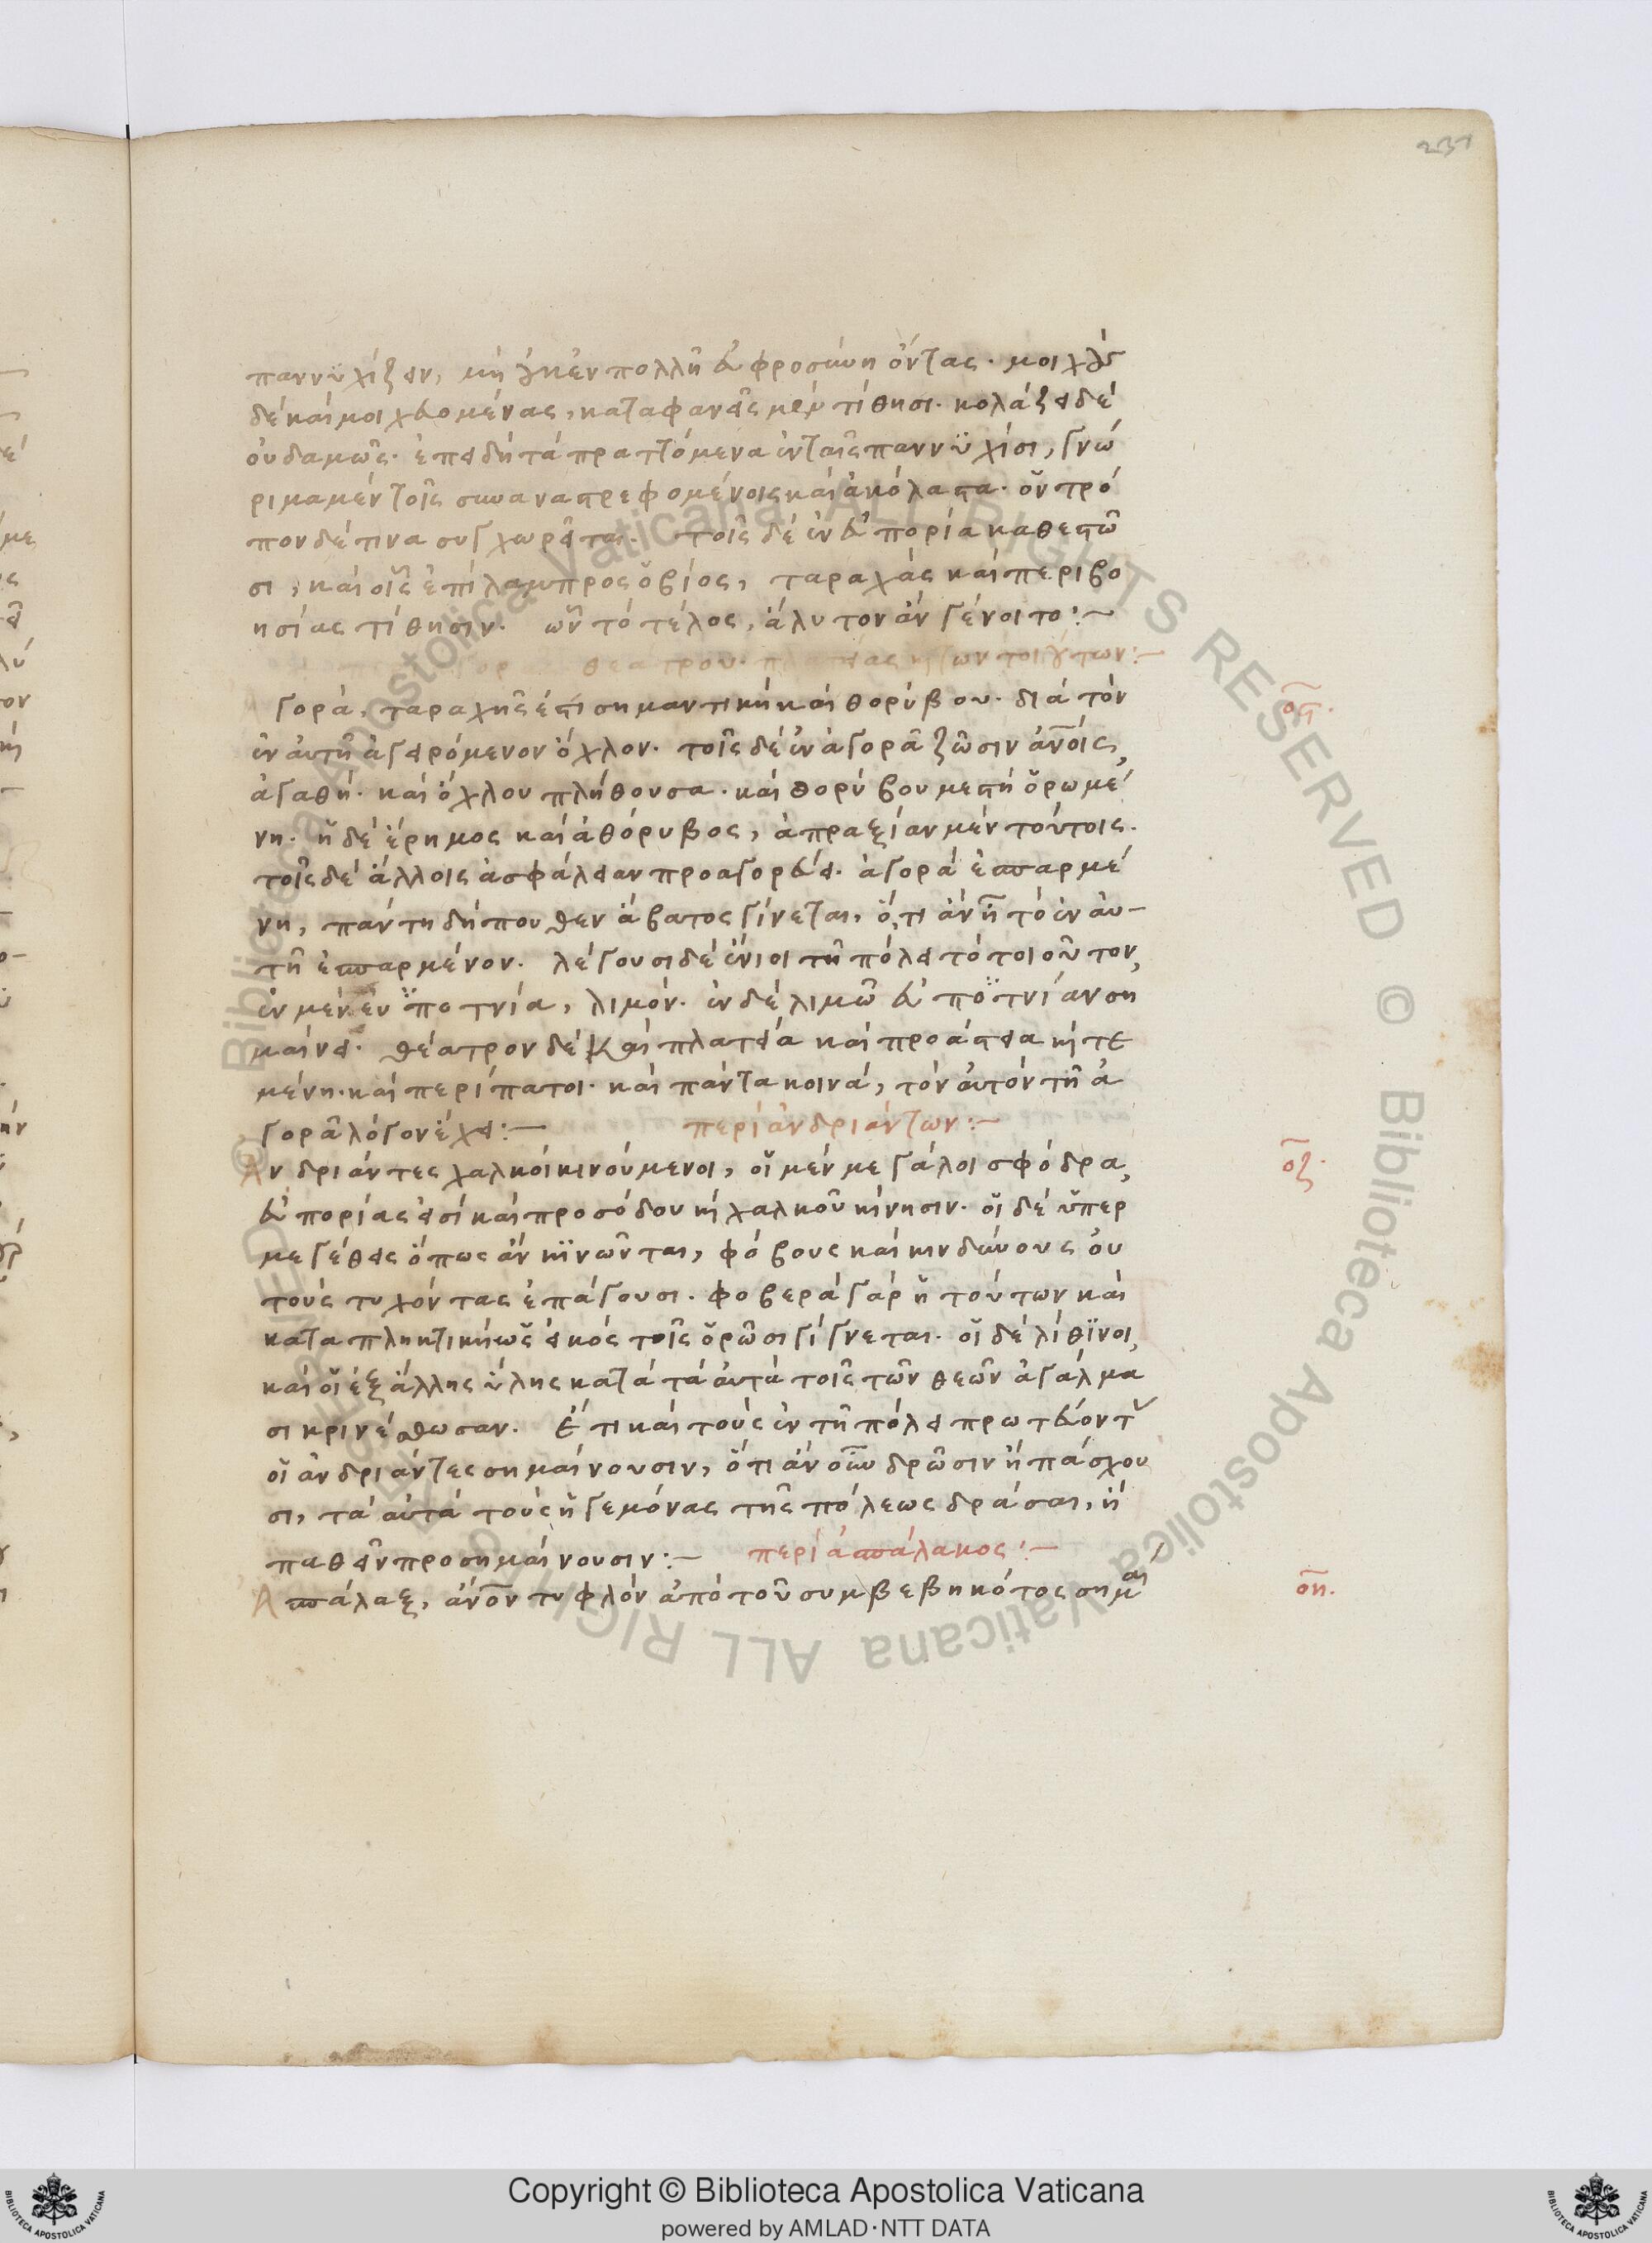 παννϋχίζειν, μὴ οὐκ ἐν πολλῆ εὐφροσύνη ὄντας. μοιχοὺς
δέ καί μοιχευομένας, καταφανεῖς μέν τίθησι. κολάζει δέ
οὐδαμῶς. ἐπειδή τά πραττόμενα ἐν ταῖς παννϋχίσι, γνώ
ριμα μέν τοῖς συναναστρεφομένοις καί ἀκόλαστα. ὃν τρό
πον δέ τινα συγχωρεῖται. τοῖς δέ ἐν εὐπορία καθεστῶ
σι, καί οἷς ἐπίλαμπρος ὁ βίος, ταραχάς καί περιβο
ησίας τίθησιν. ὧν τό τέλος, ἄλυτον ἄν γένοιτο:~
θεάτρου. πλατείας καὶ τῶν τοιούτων:~
Ἀγορά, ταραχῆς ἐστι σημαντική καί θορύβου. διά τόν
ἐν αὐτῆ ἀγειρόμενον ὄχλον. τοῖς δέ ἐν ἀγορᾶ ζῶσιν ἀνοις,
ἀγαθή. καί ὄχλου πλήθουσα. καί θορύβου μεστή ὁρωμέ
νη. ἡ δέ ἔρημος καί ἀθόρυβος, ἀπραξίαν μέν τούτοις.
τοῖς δέ ἄλλοις ἀσφάλειαν προαγορεύει. ἀγορά ἐσπαρμέ
νη, πάντη δήπουθεν ἄβατος γίνεται, ὅ,τι ἄν ἦ τό ἐν αὐ-
τῆ ἐσπαρμένον. λέγουσι δέ ἔνιοι τῆ πόλει τό τοιοῦτον,
ἐν μέν εὐποτνία, λιμόν. ἐν δέ λιμῶ εὐποτνίαν ση
μαίνει. θέατρον δέ καί πλατεία καί προάστεια καὶ τε
μένη. καί περίπατοι. καί πάντα κοινά, τόν αὐτόν τῆ ἀ
γορᾶ λόγον ἔχει:~ περί ἀνδριάντων:~
Ἀνδριάντες χαλκοῖ κινούμενοι, οἱ μέν μεγάλοι σφόδρα,
εὐπορίας εἰσί καί προσόδου καὶ χαλκοῦ κίνησιν. οἱ δέ ὑπερ
μεγέθεις ὅπως ἄν κϊνῶνται, φόβους καί κινδύνους οὐ
τούς τυχόντας ἐπάγουσι. φοβερά γάρ ἡ τούτων καί
καταπληκτική ὡς εἰκός τοῖς ὁρῶσι γίγνεται. οἱ δέ λίθϊνοι,
καί οἱ ἐξ ἄλλης ὕλης κατά τά αὐτά τοῖς τῶν θεῶν ἀγάλμα
σι κρινέσθωσαν. Ἔτι καί τούς ἐν τῆ πόλει πρωτεύοντας
οἱ ἀνδριάντες σημαίνουσιν, ὅ τι ἄν οὖν δρῶσιν ἤ πάσχου
σι, τά αὐτά τούς ἡγεμόνας τῆς πόλεως δράσαι, ἤ
παθεῖν προσημαίνουσιν:~ περί ἀσπάλακος:~
Ἀσπάλαξ, ἀνον τυφλόν ἀπό τοῦ συμβεβηκότος σημαί
ος.
οζ.
οη.